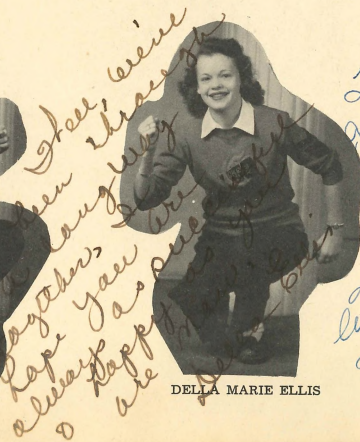 Well, we've
been through
a long way
together, I
hope you are
always as successful
& happy as you
are now.
Della Ellis
DELLA MARIE ELLIS